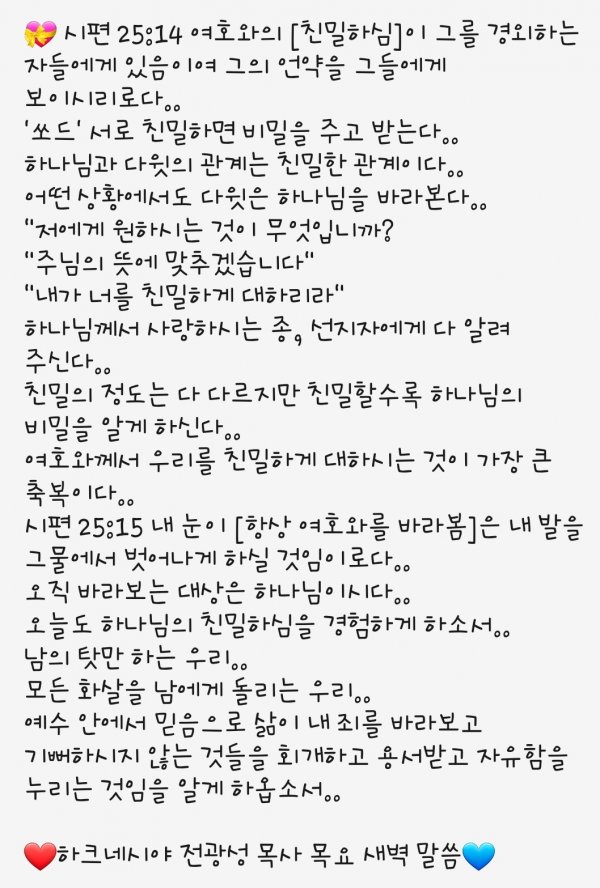 💝 시편 25:14 여호와의 [친밀하심]이 그를 경외하는
자들에게 있음이여 그의 언약을 그들에게
보이시리로다..
'쏘드' 서로 친밀하면 비밀을 주고 받는다..
하나님과 다윗의 관계는 친밀한 관계이다..
어떤 상황에서도 다윗은 하나님을 바라본다..
"저에게 원하시는 것이 무엇입니까?
"주님의 뜻에 맞추겠습니다"
"내가 너를 친밀하게 대하리라"
하나님께서 사랑하시는 종, 선지자에게 다 알려
주신다..
친밀의 정도는 다 다르지만 친밀할수록 하나님의
비밀을 알게 하신다..
여호와께서 우리를 친밀하게 대하시는 것이 가장 큰
축복이다..
시편 25:15 내 눈이 [항상 여호와를 바라봄]은 내 발을
그물에서 벗어나게 하실 것임이로다..
오직 바라보는 대상은 하나님이시다..
오늘도 하나님의 친밀하심을 경험하게 하소서..
남의 탓만 하는 우리..
모든 화살을 남에게 돌리는 우리..
예수 안에서 믿음으로 삶이 내 죄를 바라보고
기뻐하시지 않는 것들을 회개하고 용서받고 자유함을
누리는 것임을 알게 하옵소서..
❤️하크네시야 전광성 목사 목요 새벽 말씀💙